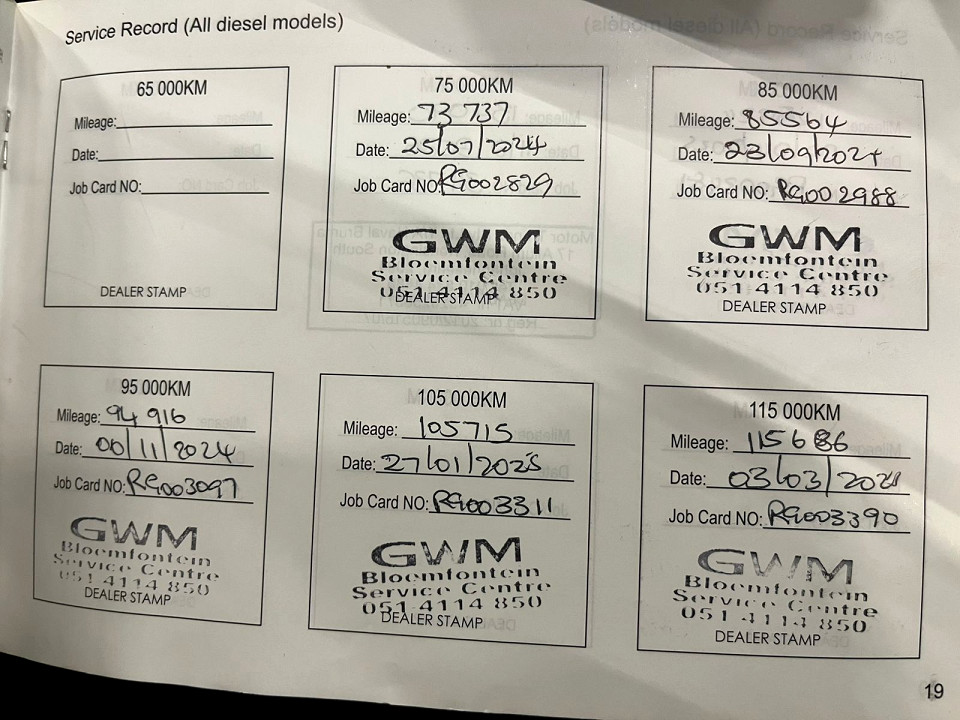 Service Record (All diesel models)
65 000KM
Mileage:
Date:
Job Card NO:
DEALER STAMP
75 000KM
Mileage: 73 737
Date: 25/07/2024
Job Card NO: RG002829
GWM
Bloemfontein
Service Centre
051 4114 850
DEALER STAMP
85 000KM
Mileage: 85564
Date: 23/09/2024
Job Card NO: RG002988
GWM
Bloemfontein
Service Centre
051 4114 850
DEALER STAMP
95 000KM
Mileage: 94 916
Date: /11/2024
Job Card NO: RG003097
GWM
Bloemfontein
Service Centre
051 4114 850
DEALER STAMP
105 000KM
Mileage: 105715
Date: 27/01/2025
Job Card NO: RG003311
GWM
Bloemfontein
Service Centre
051 4114 850
DEALER STAMP
115 000KM
Mileage: 115686
Date: 03/03/
Job Card NO: RG003390
GWM
Bloemfontein
Service Centre
051 4114 850
DEALER STAMP
19